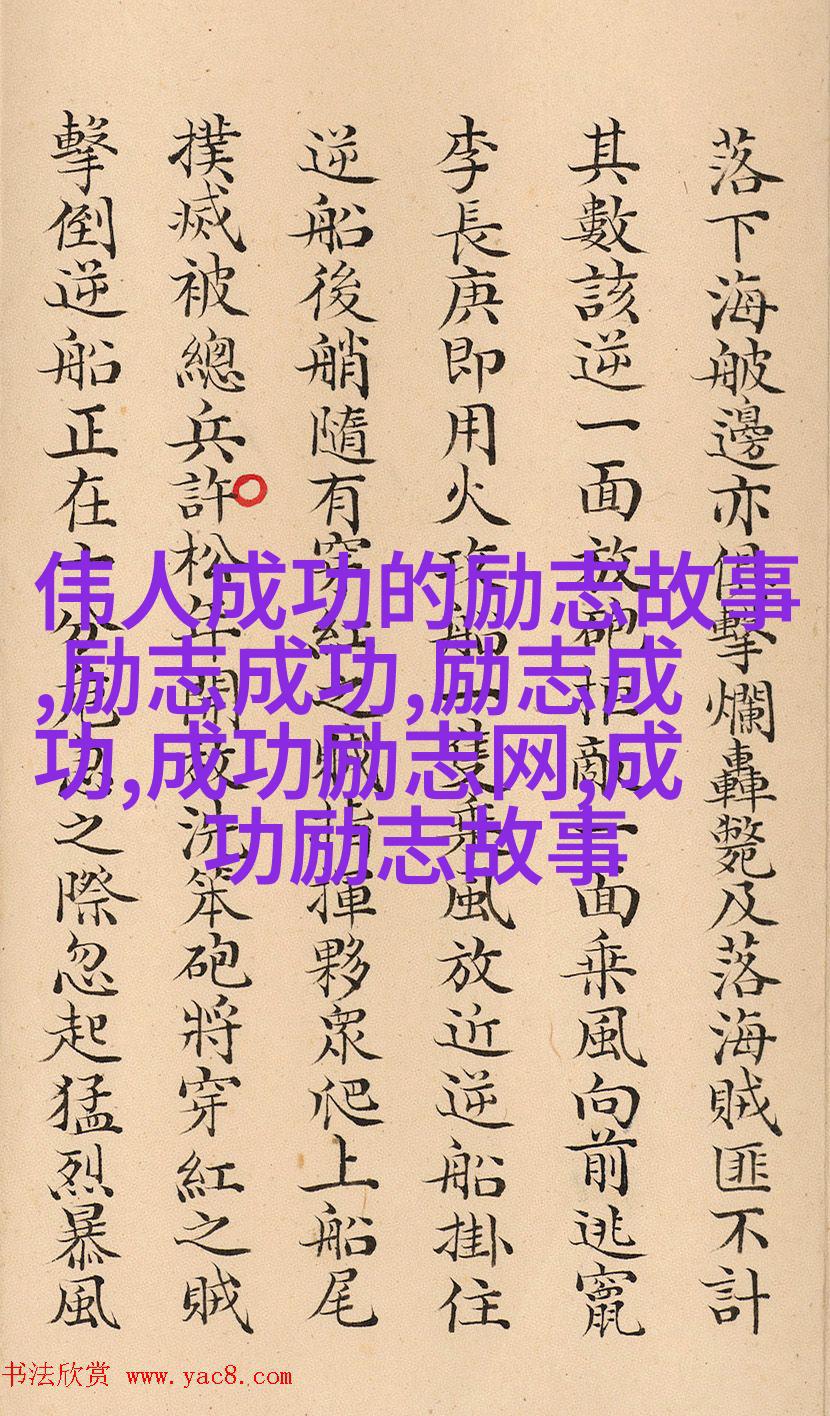 落下海邊亦俱擊爛轟斃及落海賊匪不計
其數該逆一面放砲拒敵一面乘風向前逃竄
李長庚即用火攻船一隻乘風放近逆船掛住
逆船後艄隨有穿紅之賊指揮夥眾爬上船尾
撲滅被總兵許松年開放洗笨砲將穿紅之賊
擊倒逆船正在十分危急之際忽起猛烈暴風
伟人成功的励志故事
,励志成功,励志成
功,成功励志网,成
功励志故事
书法欣赏 www.yac8.com